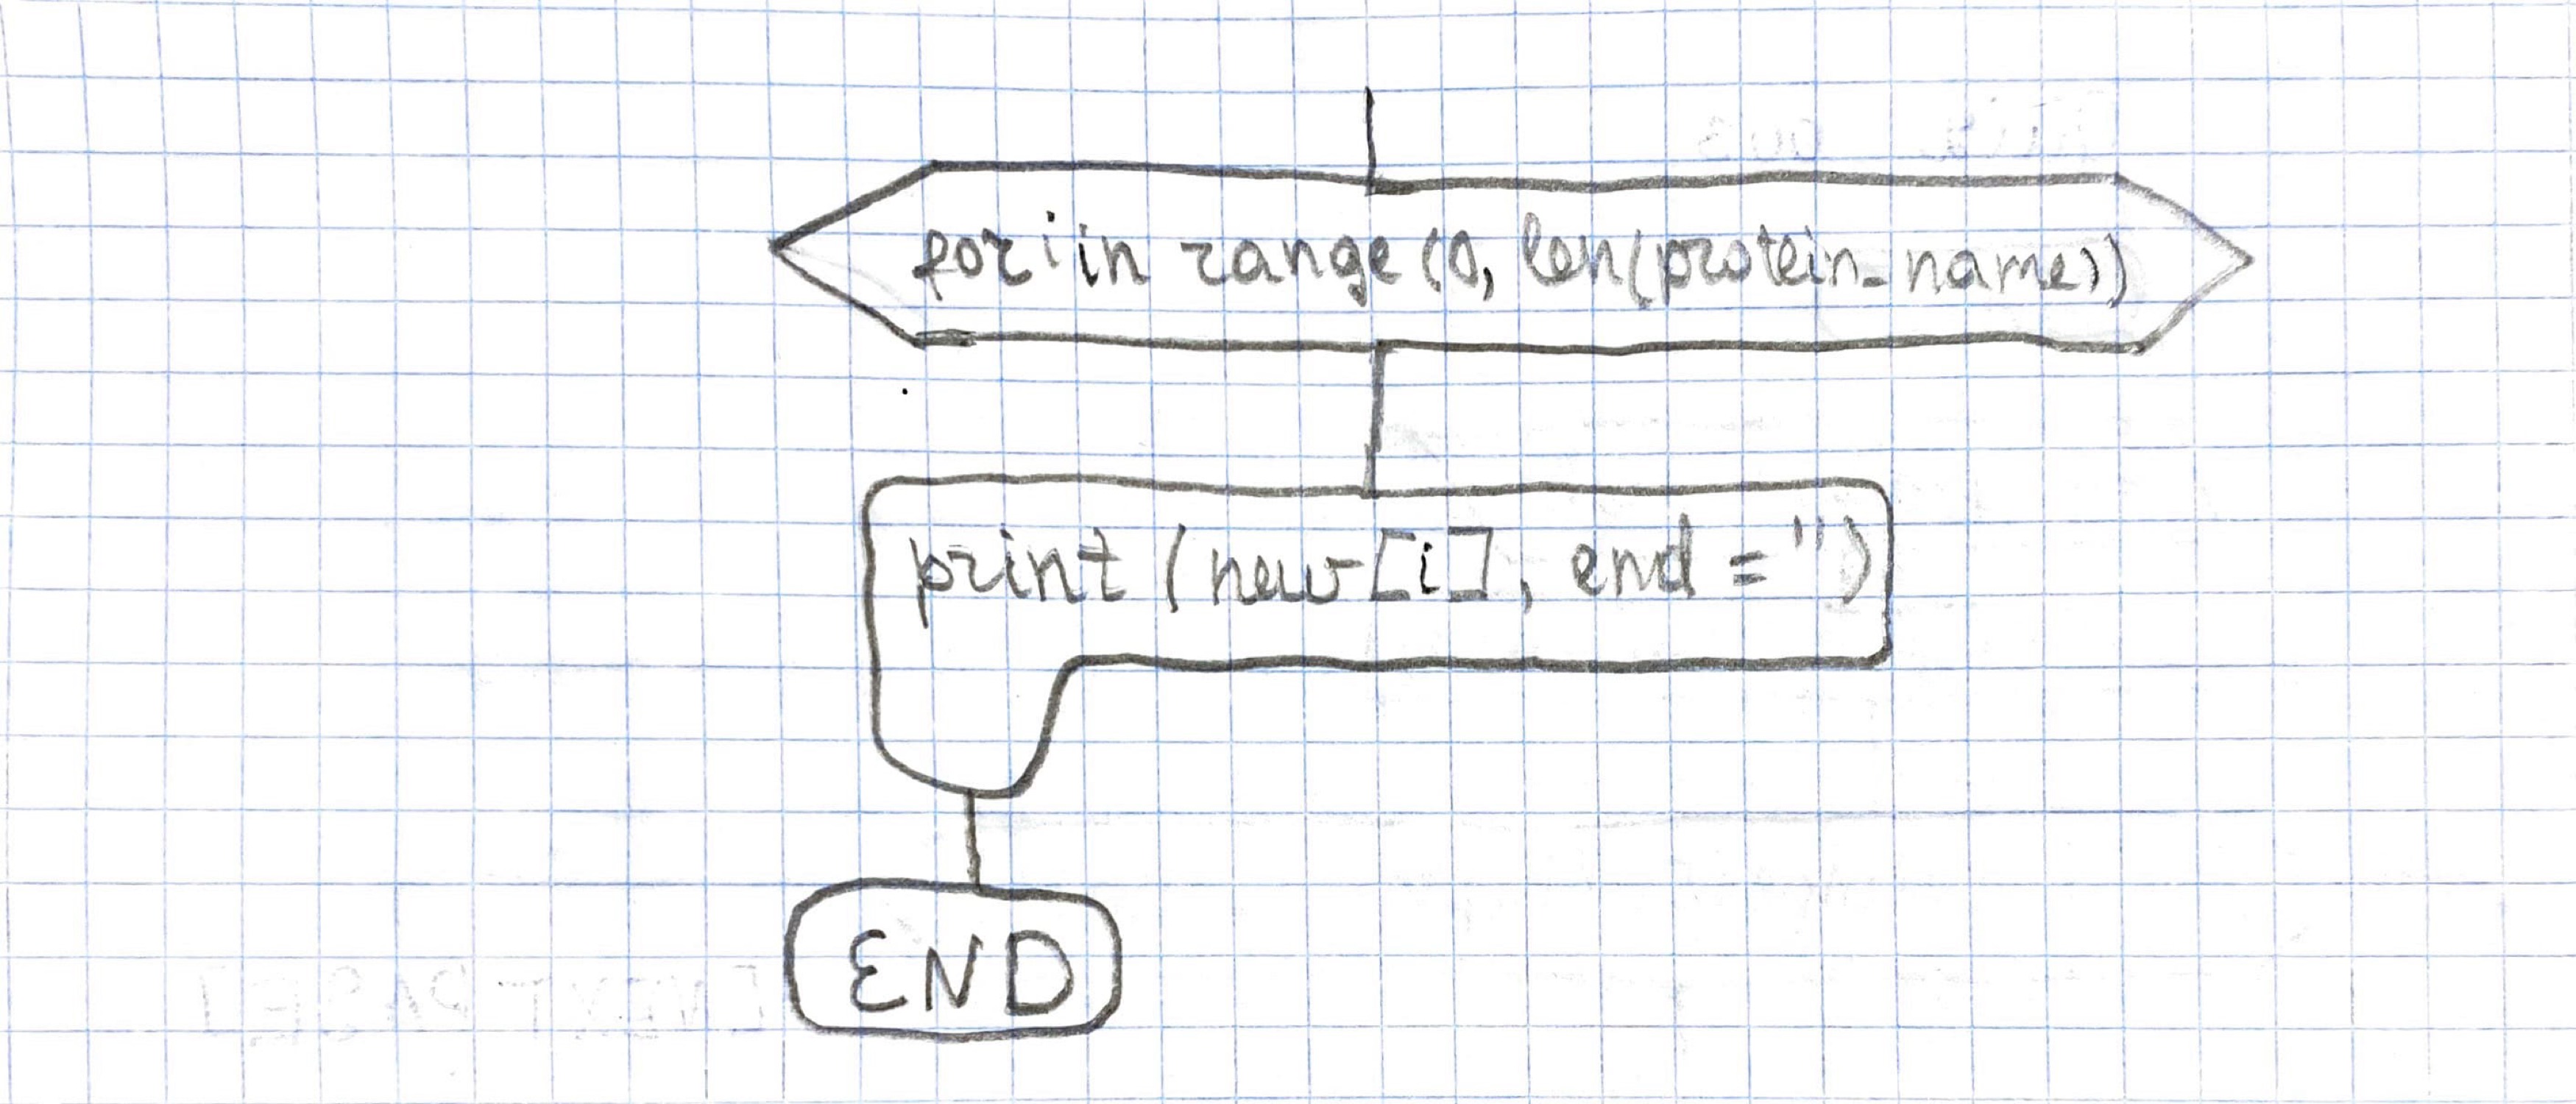 for i in range (0, len(protein_name))
print (new[i], end = '')
END